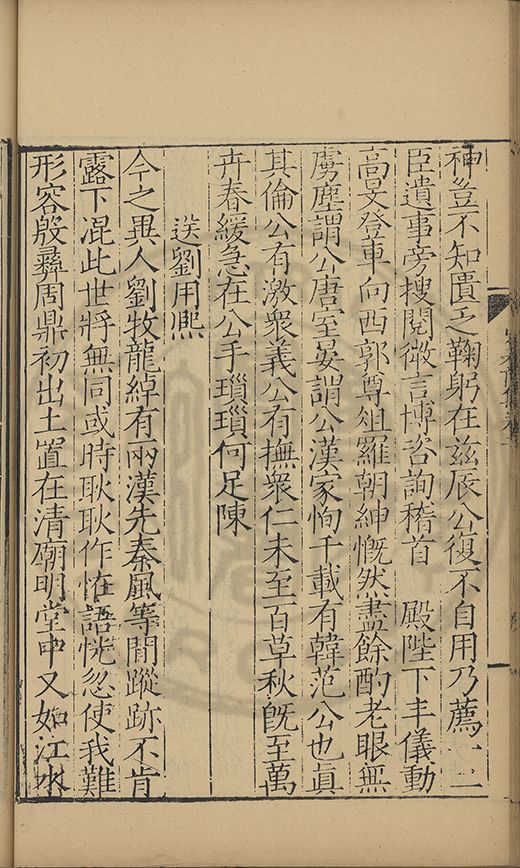 神豈不知遺之鞠躬在兹辰公復不自用乃薦一二
臣遺事旁搜閱微言博咨詢稽首 殿陛下丰儀動
高旻登車向西郭尊俎羅朝紳慨然盡餘酌老眼無
虜塵謂公唐室晏謂公漢家恂千載有韓范公也真
其倫公有激衆義公有撫衆仁未至百草秋旣至萬
卉春緩急在公手瑣瑣何足陳
送劉用熙
今之異人劉牧龍綽有兩漢先秦風等閒蹤跡不肯
露下混此世將無同或時耿耿作恠語恍忽使我難
形容殷彞周鼎初出土置在清廟明堂中又如江水